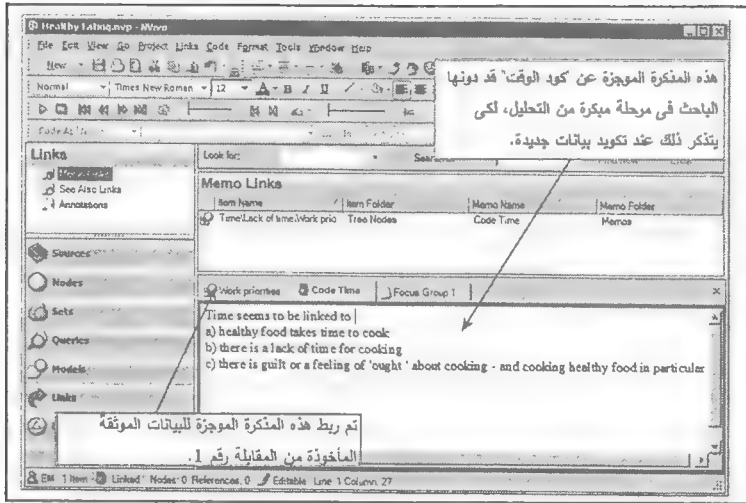 Healthy Eating.nvp - NVivo
File Edit View Go Project Links Code Format Tools Window Help
New
Normal Times New Roman 12 A B I U
هذه المذكرة الموجزة عن "كود الوقت" قد دونها
الباحث فى مرحلة مبكرة من التحليل، لكى
يتذكر ذلك عند تكويد بيانات جديدة.
Code At
Links
Memo Links
See Also Links
Annotations
Look for:
Memo Links
Item Name Item Folder Memo Name Memo Folder
Time\Lack of time\Work prio Tree Nodes Code Time Memos
Sources
Nodes
Sets
Queries
Models
Links
Work priorities Code Time Focus Group 1
Time seems to be linked to
a) healthy food takes time to cook
b) there is a lack of time for cooking
c) there is guilt or a feeling of 'ought ' about cooking - and cooking healthy food in particular
تم ربط هذه المذكرة الموجزة للبيانات الموثقة
المأخوذة من المقابلة رقم 1.
EM 1 Item Linked Nodes: 0 References: 0 Editable Line: 1 Column: 27